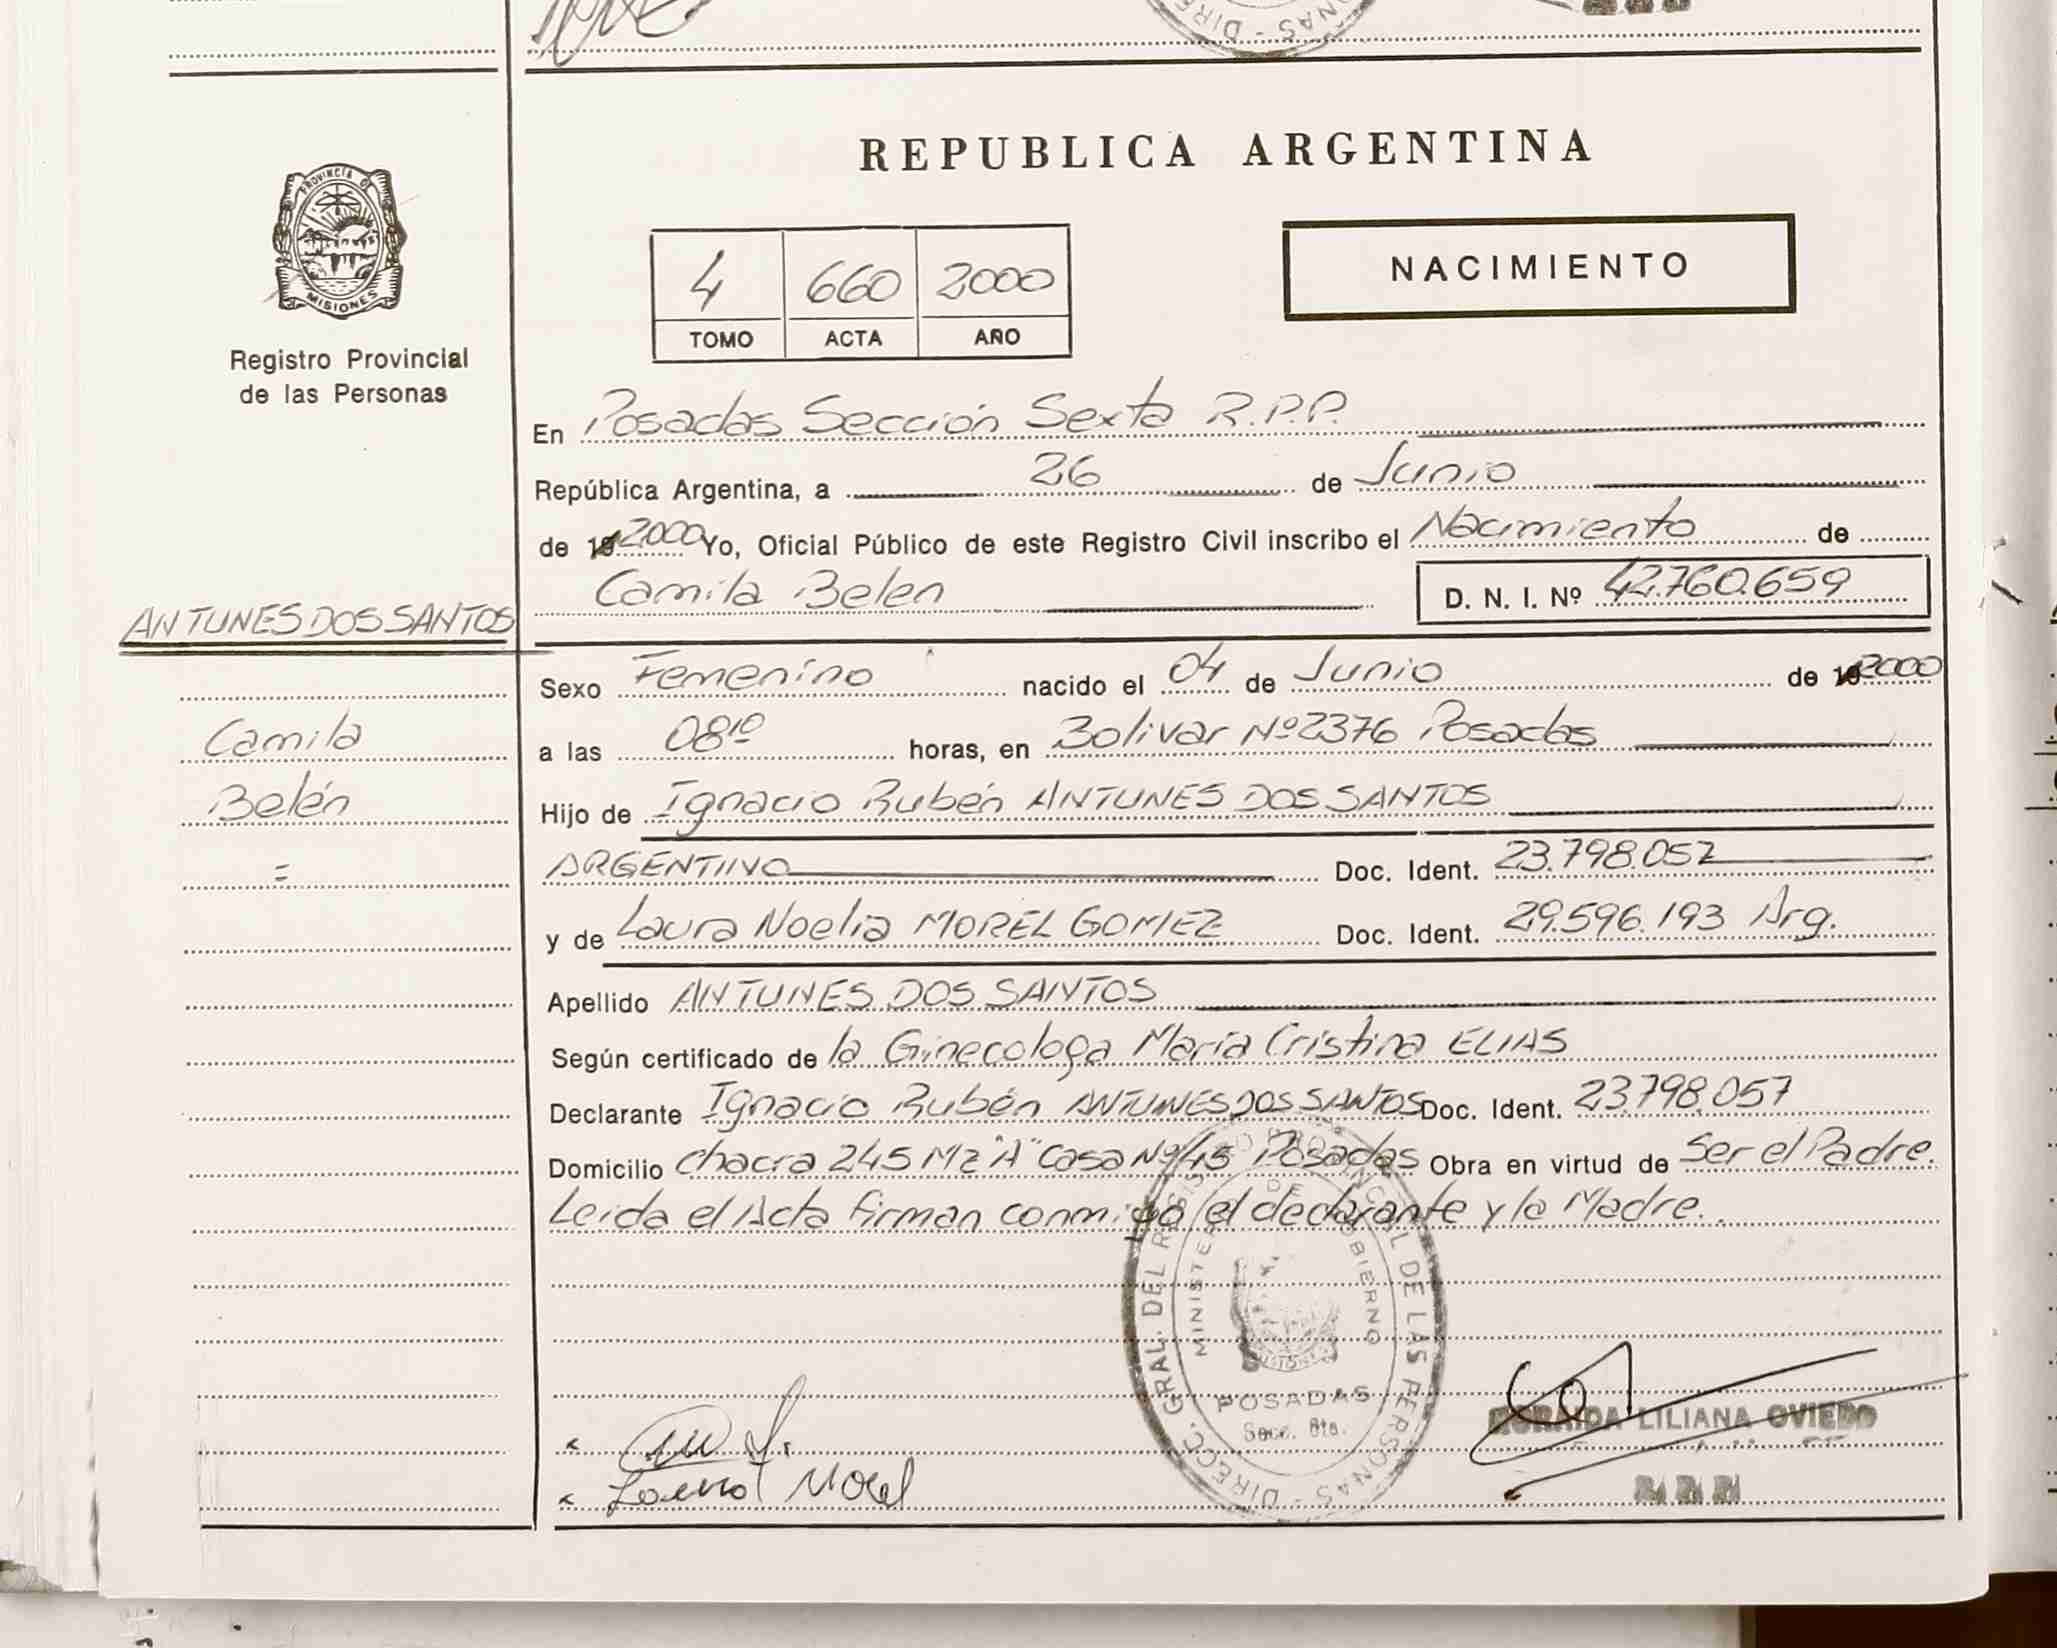 REPUBLICA ARGENTINA
PROVINCIA DE
MISIONES
Registro Provincial
de las Personas
4 660 2000
TOMO ACTA AÑO
NACIMIENTO
En Posadas Sección Sexta R.P.P.
República Argentina, a 26 de Junio
de 19 2000 Yo, Oficial Público de este Registro Civil inscribo el Nacimiento de
Camila Belen D. N. I. Nº 42.760.659
ANTUNES DOS SANTOS
Camila
Belén
=
Sexo Femenino nacido el 04 de Junio de 19 2000
a las 08¹⁰ horas, en Bolivar Nº 2376 Posadas
Hijo de Ignacio Rubén ANTUNES DOS SANTOS
ARGENTINO Doc. Ident. 23.798.057
y de Laura Noelia MOREL GOMEZ Doc. Ident. 29.596.193 Arg.
Apellido ANTUNES DOS SANTOS
Según certificado de la Ginecologa María Cristina ELIAS
Declarante Ignacio Rubén ANTUNES DOS SANTOS Doc. Ident. 23.798.057
Domicilio chacra 245 Mz "A" Casa Nº 45 Posadas Obra en virtud de Ser el Padre.
Leida el Acta firman conmigo el declarante y la Madre.
DIRECC. GRAL. DEL REGISTRO PROVINCIAL DE LAS PERSONAS
MINISTERIO DE GOBIERNO
POSADAS
Secc. 6ta.
LILIANA OVIEDO
Morel